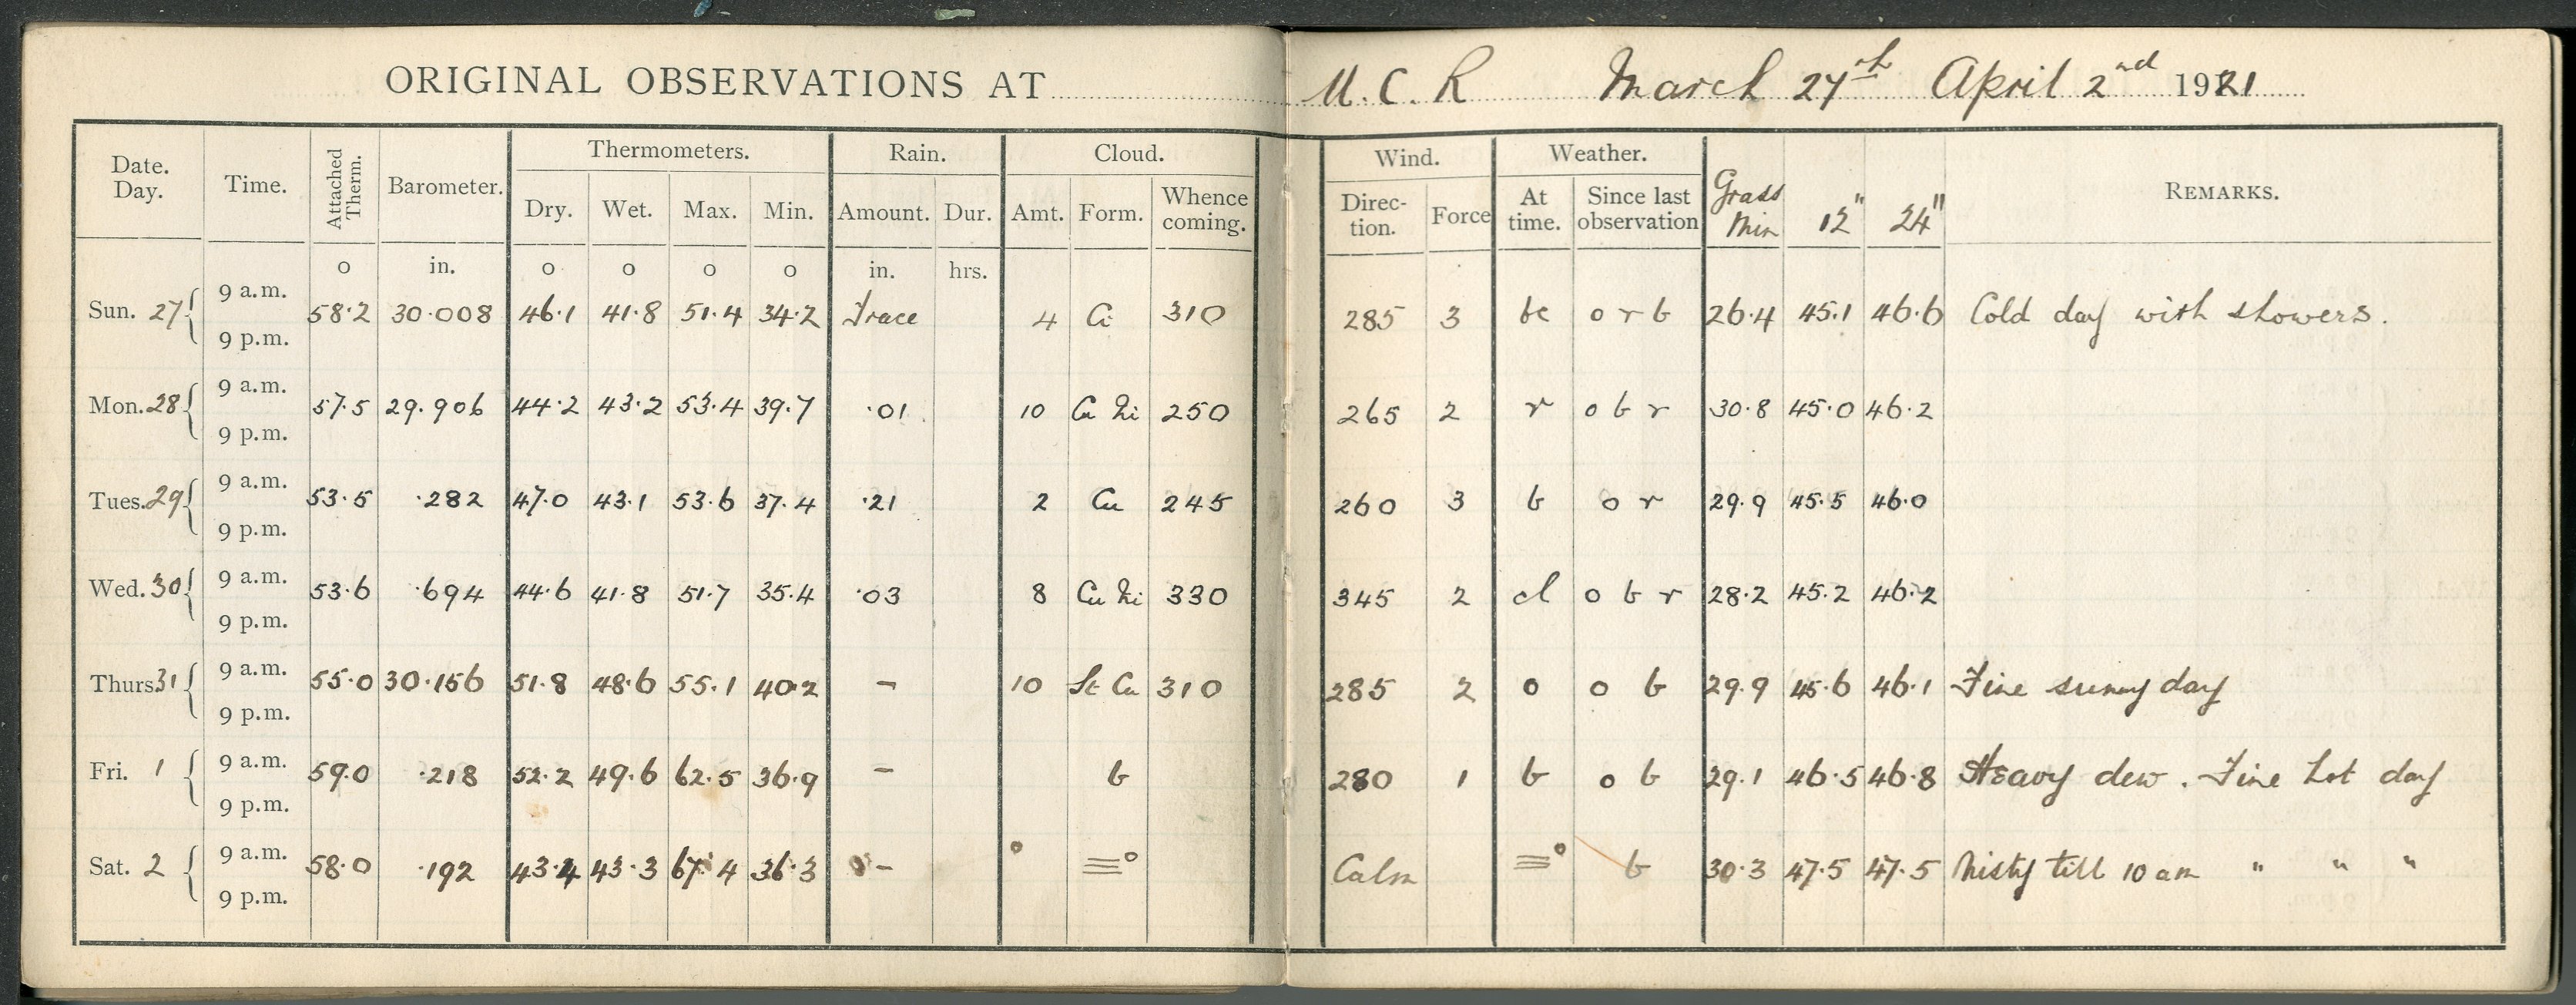 ORIGINAL OBSERVATIONS AT M. C. R March 27th April 2nd 1921
Date. Day. Time. Attached Therm. Barometer. Thermometers. Rain. Cloud. Wind. Weather. Grass Min 12" 24" REMARKS.
Dry. Wet. Max. Min. Amount. Dur. Amt. Form. Whence coming. Direc- tion. Force At time. Since last observation
o in. o o o o in. hrs.
Sun. 27 9 a.m. 9 p.m. 58.2 30.008 46.1 41.8 51.4 34.2 Trace 4 Ci 310 285 3 bc o r b 26.4 45.1 46.6 Cold day with showers.
Mon. 28 9 a.m. 9 p.m. 57.5 29.906 44.2 43.2 53.4 39.7 .01 10 Cu Ni 250 265 2 r o b r 30.8 45.0 46.2
Tues. 29 9 a.m. 9 p.m. 53.5 .282 47.0 43.1 53.6 37.4 .21 2 Cu 245 260 3 b o r 29.9 45.5 46.0
Wed. 30 9 a.m. 9 p.m. 53.6 .694 44.6 41.8 51.7 35.4 .03 8 Cu Ni 330 345 2 cl o b r 28.2 45.2 46.2
Thurs 31 9 a.m. 9 p.m. 55.0 30.156 51.8 48.6 55.1 40.2 - 10 St Cu 310 285 2 o o b 29.9 45.6 46.1 Fine sunny day
Fri. 1 9 a.m. 9 p.m. 59.0 .218 52.2 49.6 62.5 36.9 - b 280 1 b o b 29.1 46.5 46.8 Heavy dew. Fine hot day
Sat. 2 9 a.m. 9 p.m. 58.0 .192 43.4 43.3 67.4 36.3 - o ≡° Calm ≡° b 30.3 47.5 47.5 Misty till 10 am " " "